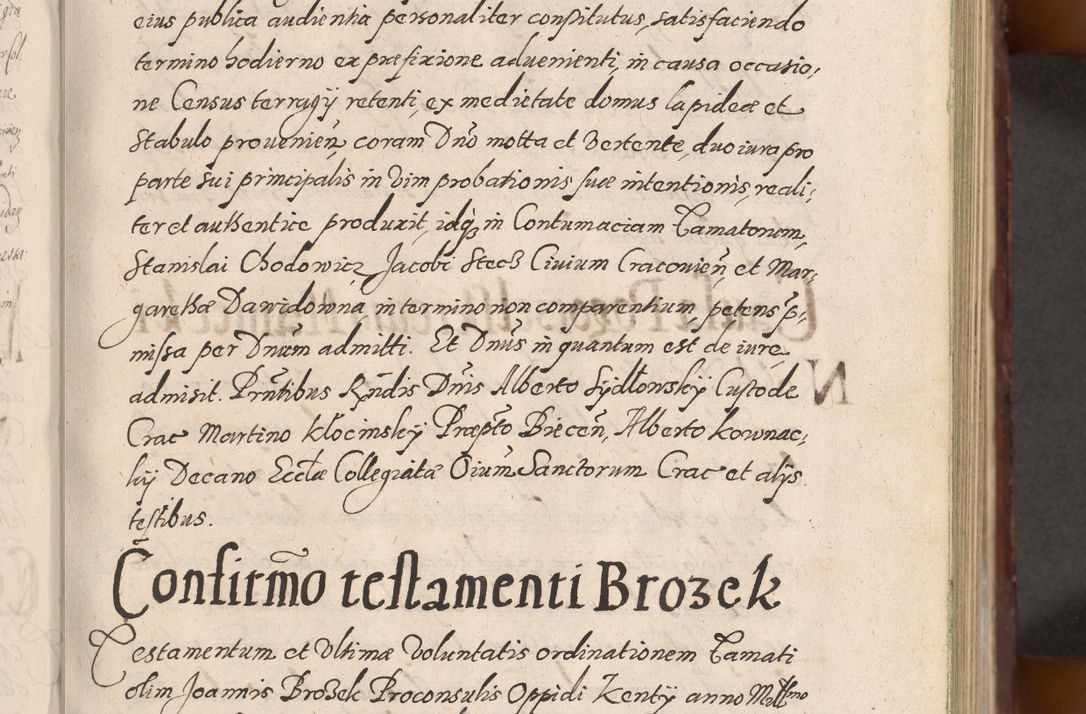 eius publica audientia personaliter constitutus, satisfaciendo
termino hodierno ex prefixione aduenienti, in causa occasio,
ne Census terragÿ retenti, ex medietate domus lapideæ et
Stabulo prouenień, coram Dnõ motta et Vertente, duo iura pro
parte sui principalis in Vim probationis suæ intentionis, reali,
ter et authentice produxit, idq́, in Contumaciam Famatorum,
Stanislai Chodowicz, Jacobi Stech Ciuium Cracouień, et Mar,
garethæ Dawidowna, in termino non comparentium, petens p̃,
missa per Dnũm admitti. Et Dnũs in quantum est de iure,
admisit. Prñtibus Rñdis Dnĩs Alberto Sÿdłowskÿ Custode
Crac Martino Kłocinskÿ Præpto Biecen̄, Alberto Kownac,
kÿ Decano Eccłæ Collegiatæ Oium̃ Sanctorum Crac et alÿs
testibus.
Confirm̃o testamenti Brozek
Testamentum et Vltimæ Voluntatis ordinationem Famati
olim Joannis Brozek Proconsulis Oppidi Kentÿ anno Millmo